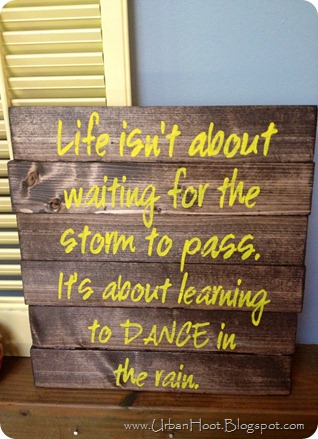 Life isn't about
waiting for the
storm to pass.
It's about learning
to DANCE in
the rain.
www.UrbanHoot.Blogspot.com